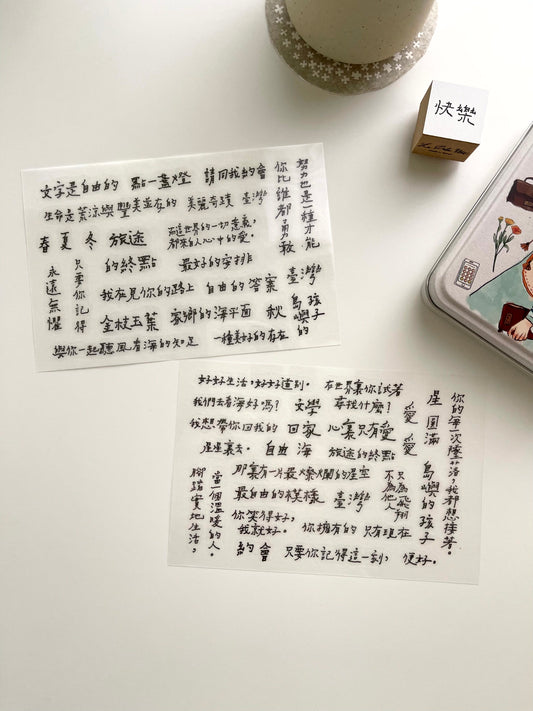 快樂
文字是自由的 點一盞燈 請回我的會
生命是荒涼與豐美並存的 美麗奇蹟 臺灣
春 夏 冬 旅途
在這世界的一切意義,
都來自人心中的愛。
你比誰都勇敢
努力也是一種才能
永遠無懼
只要你記得
的終點 最好的安排
我在見你的路上 自由的答案 臺灣
金枝玉葉 家鄉的海平面 秋
島嶼的孩子
與你一起聽風有海的知足 一種美好的存在
好好生活,好好道別。 在世界裏你試著
我們去看海好嗎? 文學 尋找什麼?
我想帶你回我的 回家 心裏只有愛
愛
星星裏去。 自由 海 旅途的終點
星 圓滿
你的每一次墜落,我都想接著。
島嶼的孩子
腳踏實地生活,
當一個溫暖的人。
那裏有一片最燦爛的星空
最自由的模樣 臺灣
只為飛翔
不為他人
你笑得好,
我就好。 你擁有的 只有現在
約會 只要你記得這一刻, 便好。